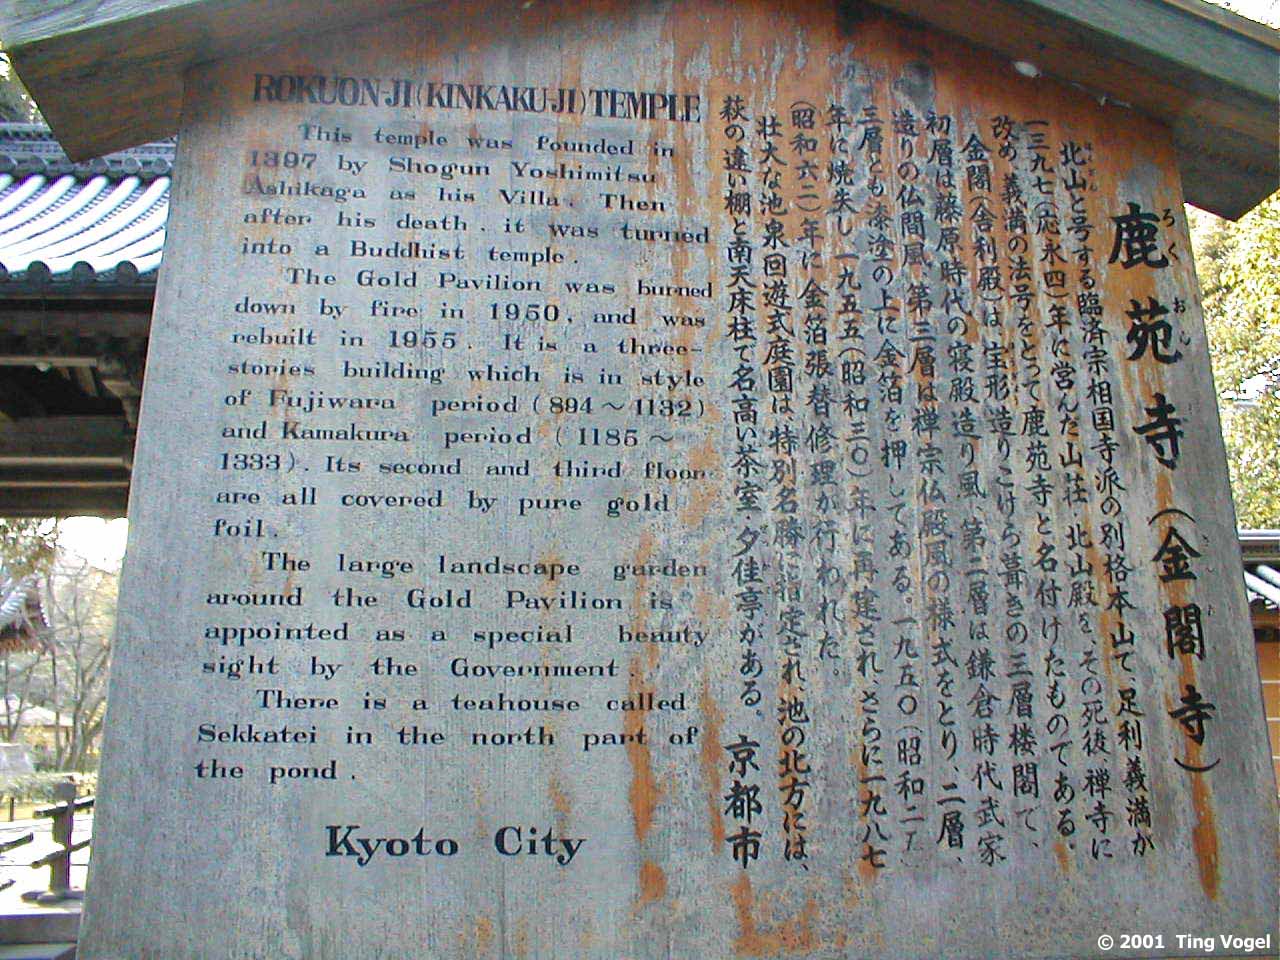 ROKUON-JI (KINKAKU-JI) TEMPLE
This temple was founded in
1397 by Shogun Yoshimitsu
Ashikaga as his Villa. Then
after his death, it was turned
into a Buddhist temple.
The Gold Pavilion was burned
down by fire in 1950, and was
rebuilt in 1955. It is a three-
stories building which is in style
of Fujiwara period (894～1132)
and Kamakura period (1185～
1333). Its second and third floor
are all covered by pure gold
foil.
The large landscape garden
around the Gold Pavilion is
appointed as a special beauty
sight by the Government.
There is a teahouse called
Sekkatei in the north part of
the pond.
Kyoto City
鹿苑寺(金閣寺)
ろくおん
北山と号する臨済宗相国寺派の別格本山で、足利義満が
一三九七(応永四)年に営んだ山荘 北山殿を、その死後、禅寺に
改め、義満の法号をとって鹿苑寺と名付けたものである。
金閣(舎利殿)は宝形造りこけら葺きの三層楼閣で、
初層は藤原時代の寝殿造り風、第二層は鎌倉時代武家
造りの仏間風、第三層は禅宗仏殿風の様式をとり、二層、
三層とも漆塗の上に金箔を押してある。一九五〇(昭和二五)
年に焼失し、一九五五(昭和三〇)年に再建され、さらに一九八七
(昭和六二)年に金箔張替修理が行われた。
壮大な池泉回遊式庭園は特別名勝に指定され、池の北方には、
萩の違い棚と南天床柱で名高い茶室・夕佳亭がある。
京都市
© 2001 Ting Vogel